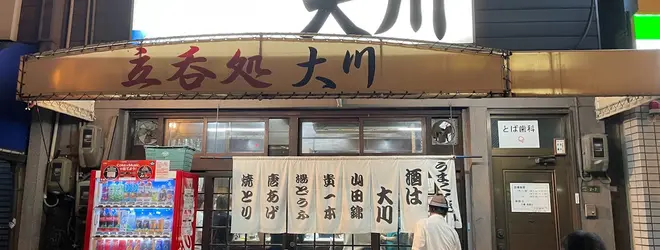 大川
立呑処 大川
とば歯科
酒は
大川
山田錦
貴一本
湯どうふ
唐あげ
焼とり